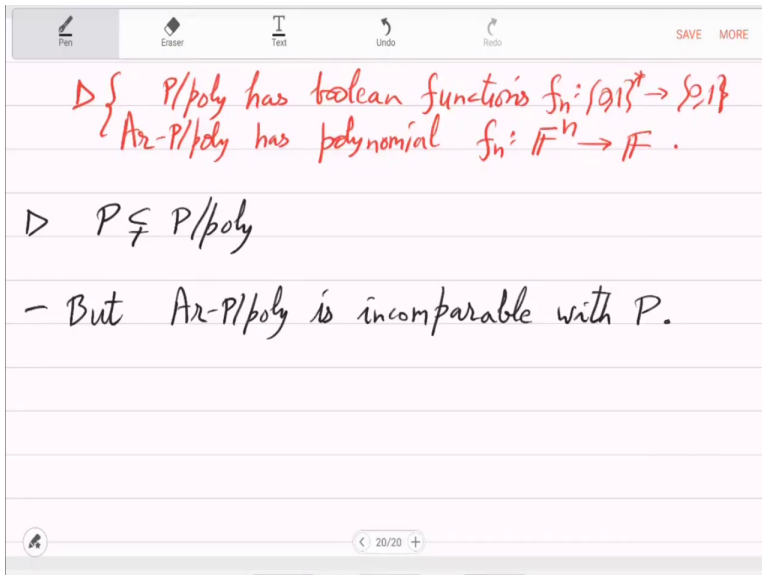 Pen Eraser Text Undo Redo SAVE MORE
▷ { P/poly has boolean functions fₙ: {0,1}* → {0,1}
Ar-P/poly has polynomial fₙ: 𝔽ⁿ → 𝔽 .
▷ P ⊊ P/poly
- But Ar-P/poly is incomparable with P.
20/20